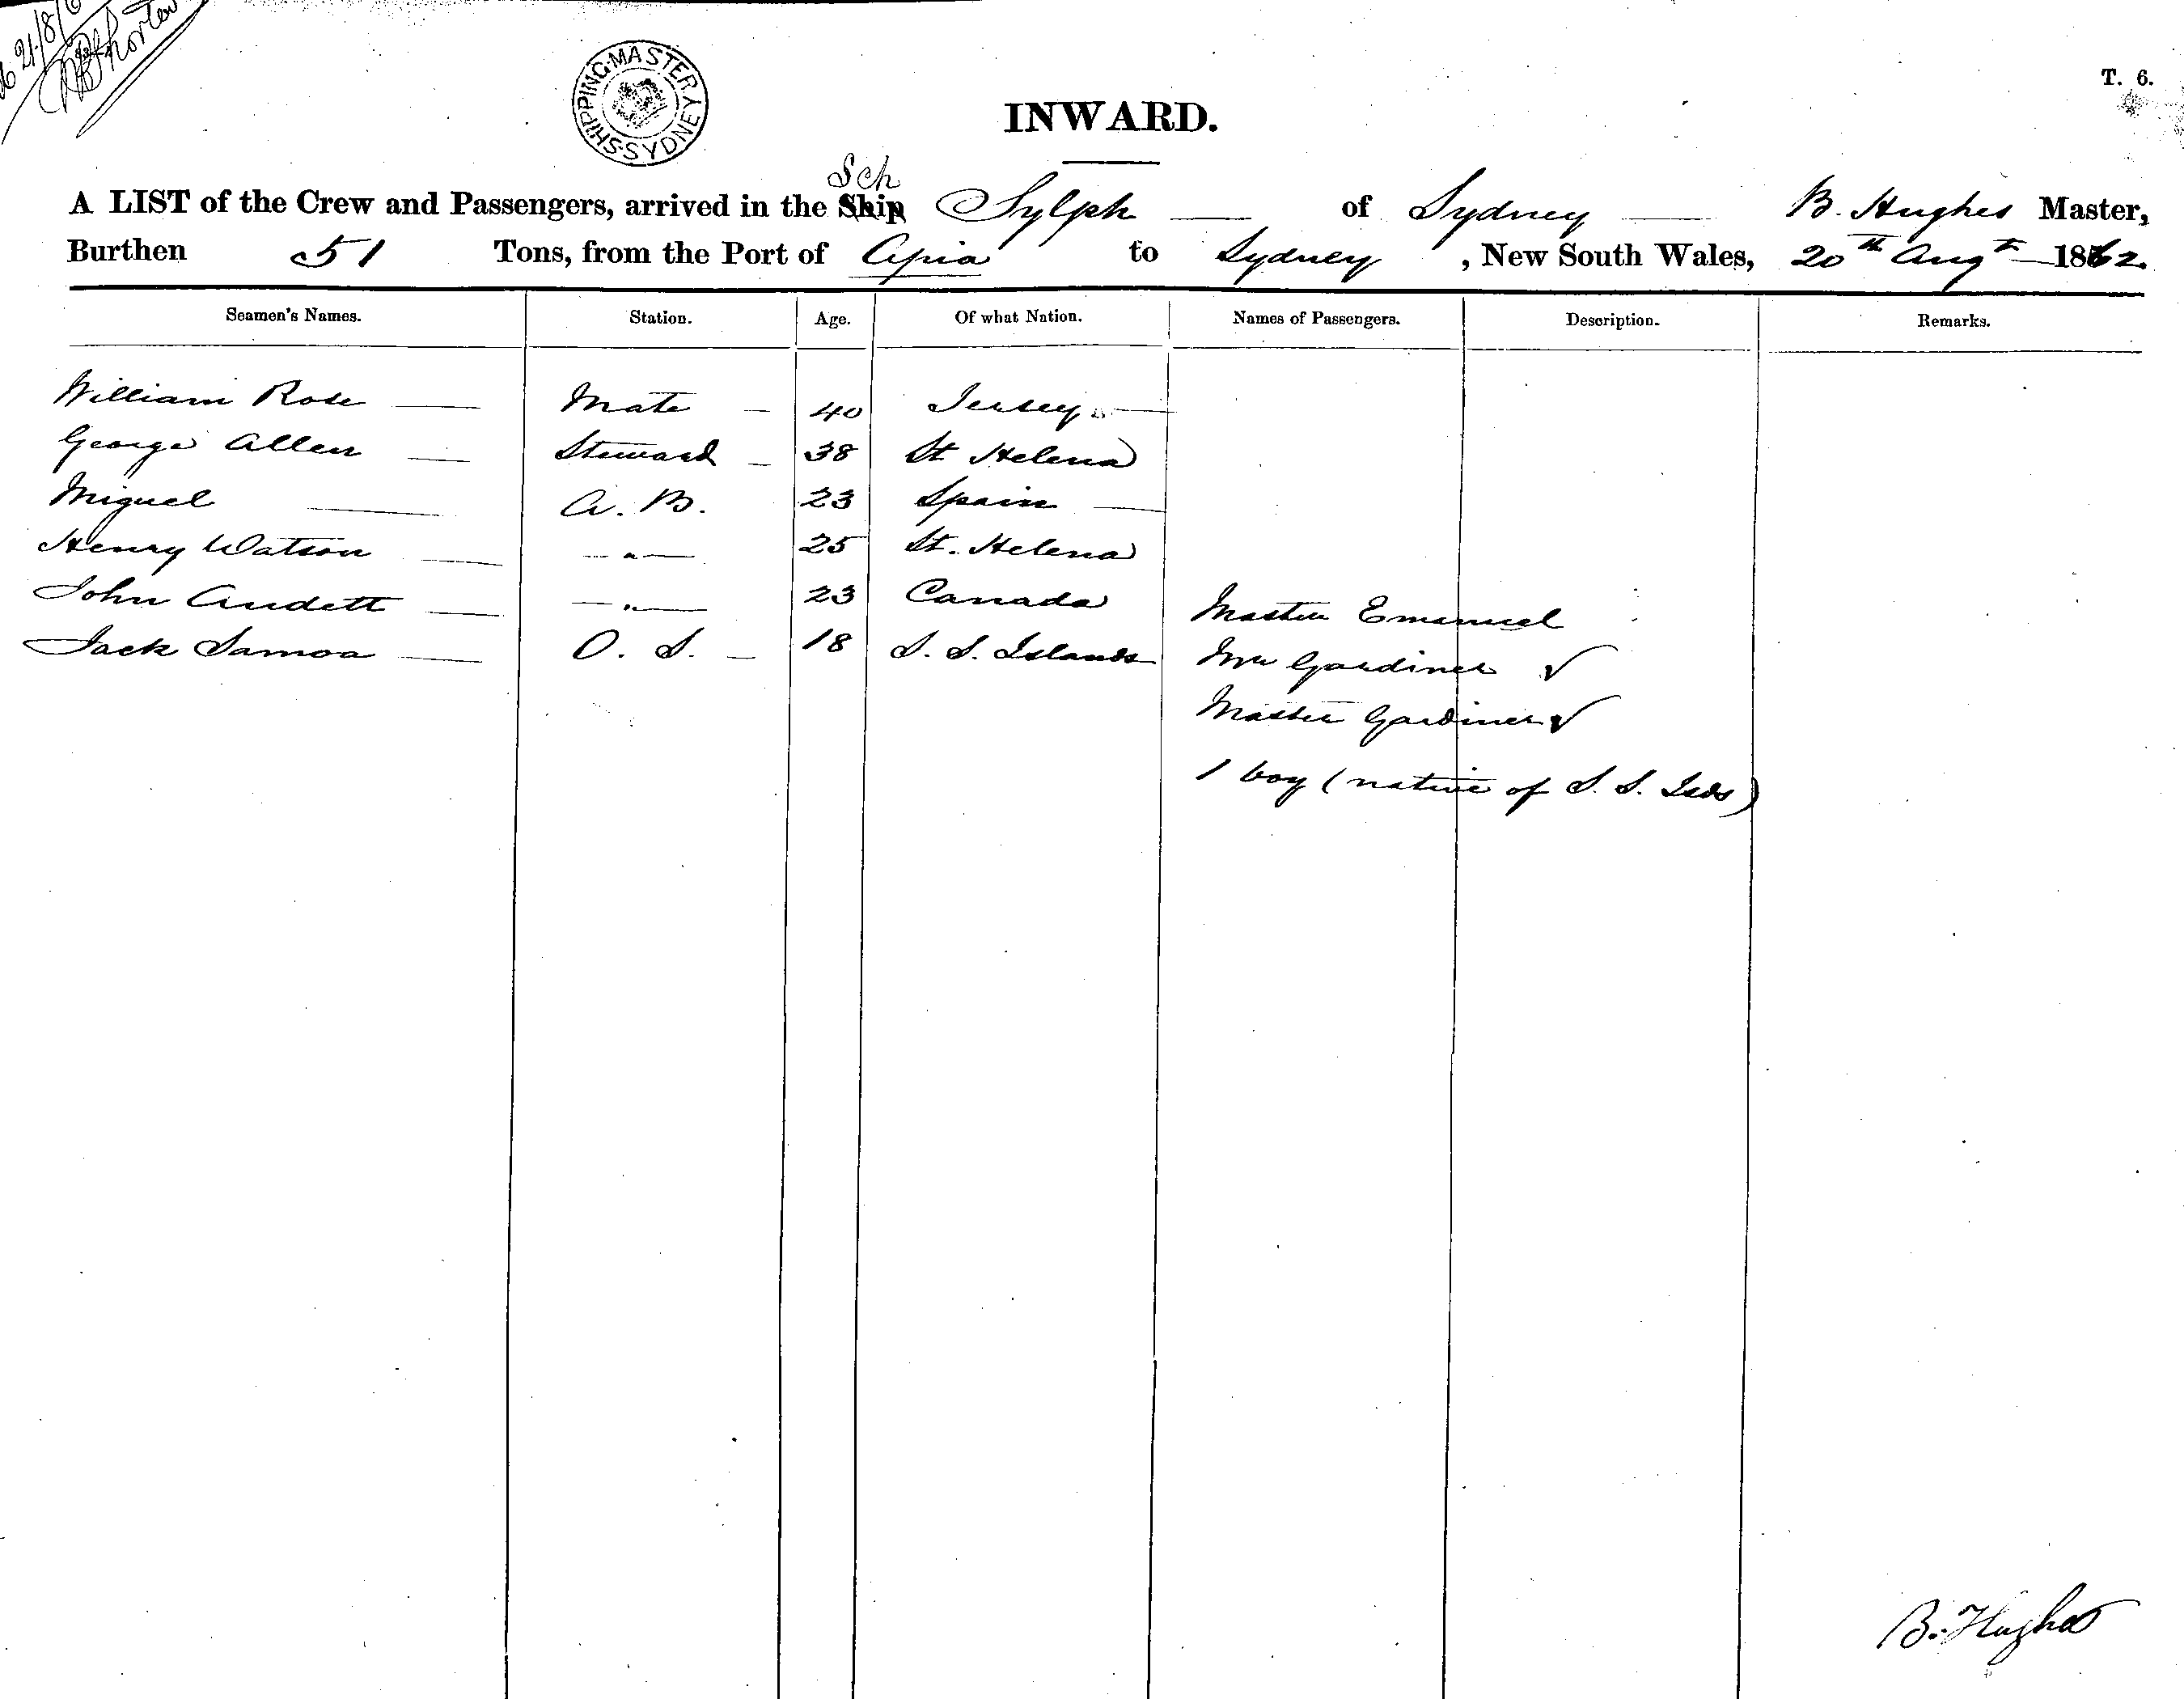 21/8/6
T. 6.
SHIPPING MASTER SYDNEY
INWARD.
Sch
A LIST of the Crew and Passengers, arrived in the Ship Sylph of Sydney B. Hughes Master,
Burthen 51 Tons, from the Port of Apia to Sydney, New South Wales, 20th Augt 1862.
Seamen's Names. Station. Age. Of what Nation. Names of Passengers. Description. Remarks.
William Rose Mate 40 Jersey
George Allen Steward 38 St Helena
Miguel A. B. 23 Spain
Henry Watson " 25 St. Helena
John Audett " 23 Canada
Master Emanuel
Jack Samoa O. S. 18 S. S. Islands
Mrs Gardiner ✓
Master Gardiner ✓
1 boy (native of S. S. Isds)
B. Hughes